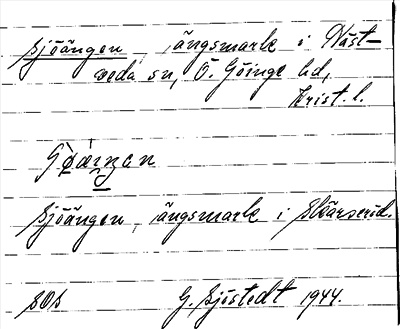 Sjöängen, ängsmark i Näst-
veda sn, Ö. Göinge hd,
Krist. l.
Sjöängen, ängsmark i Skärserid.
SOS G. Sjöstedt 1944.